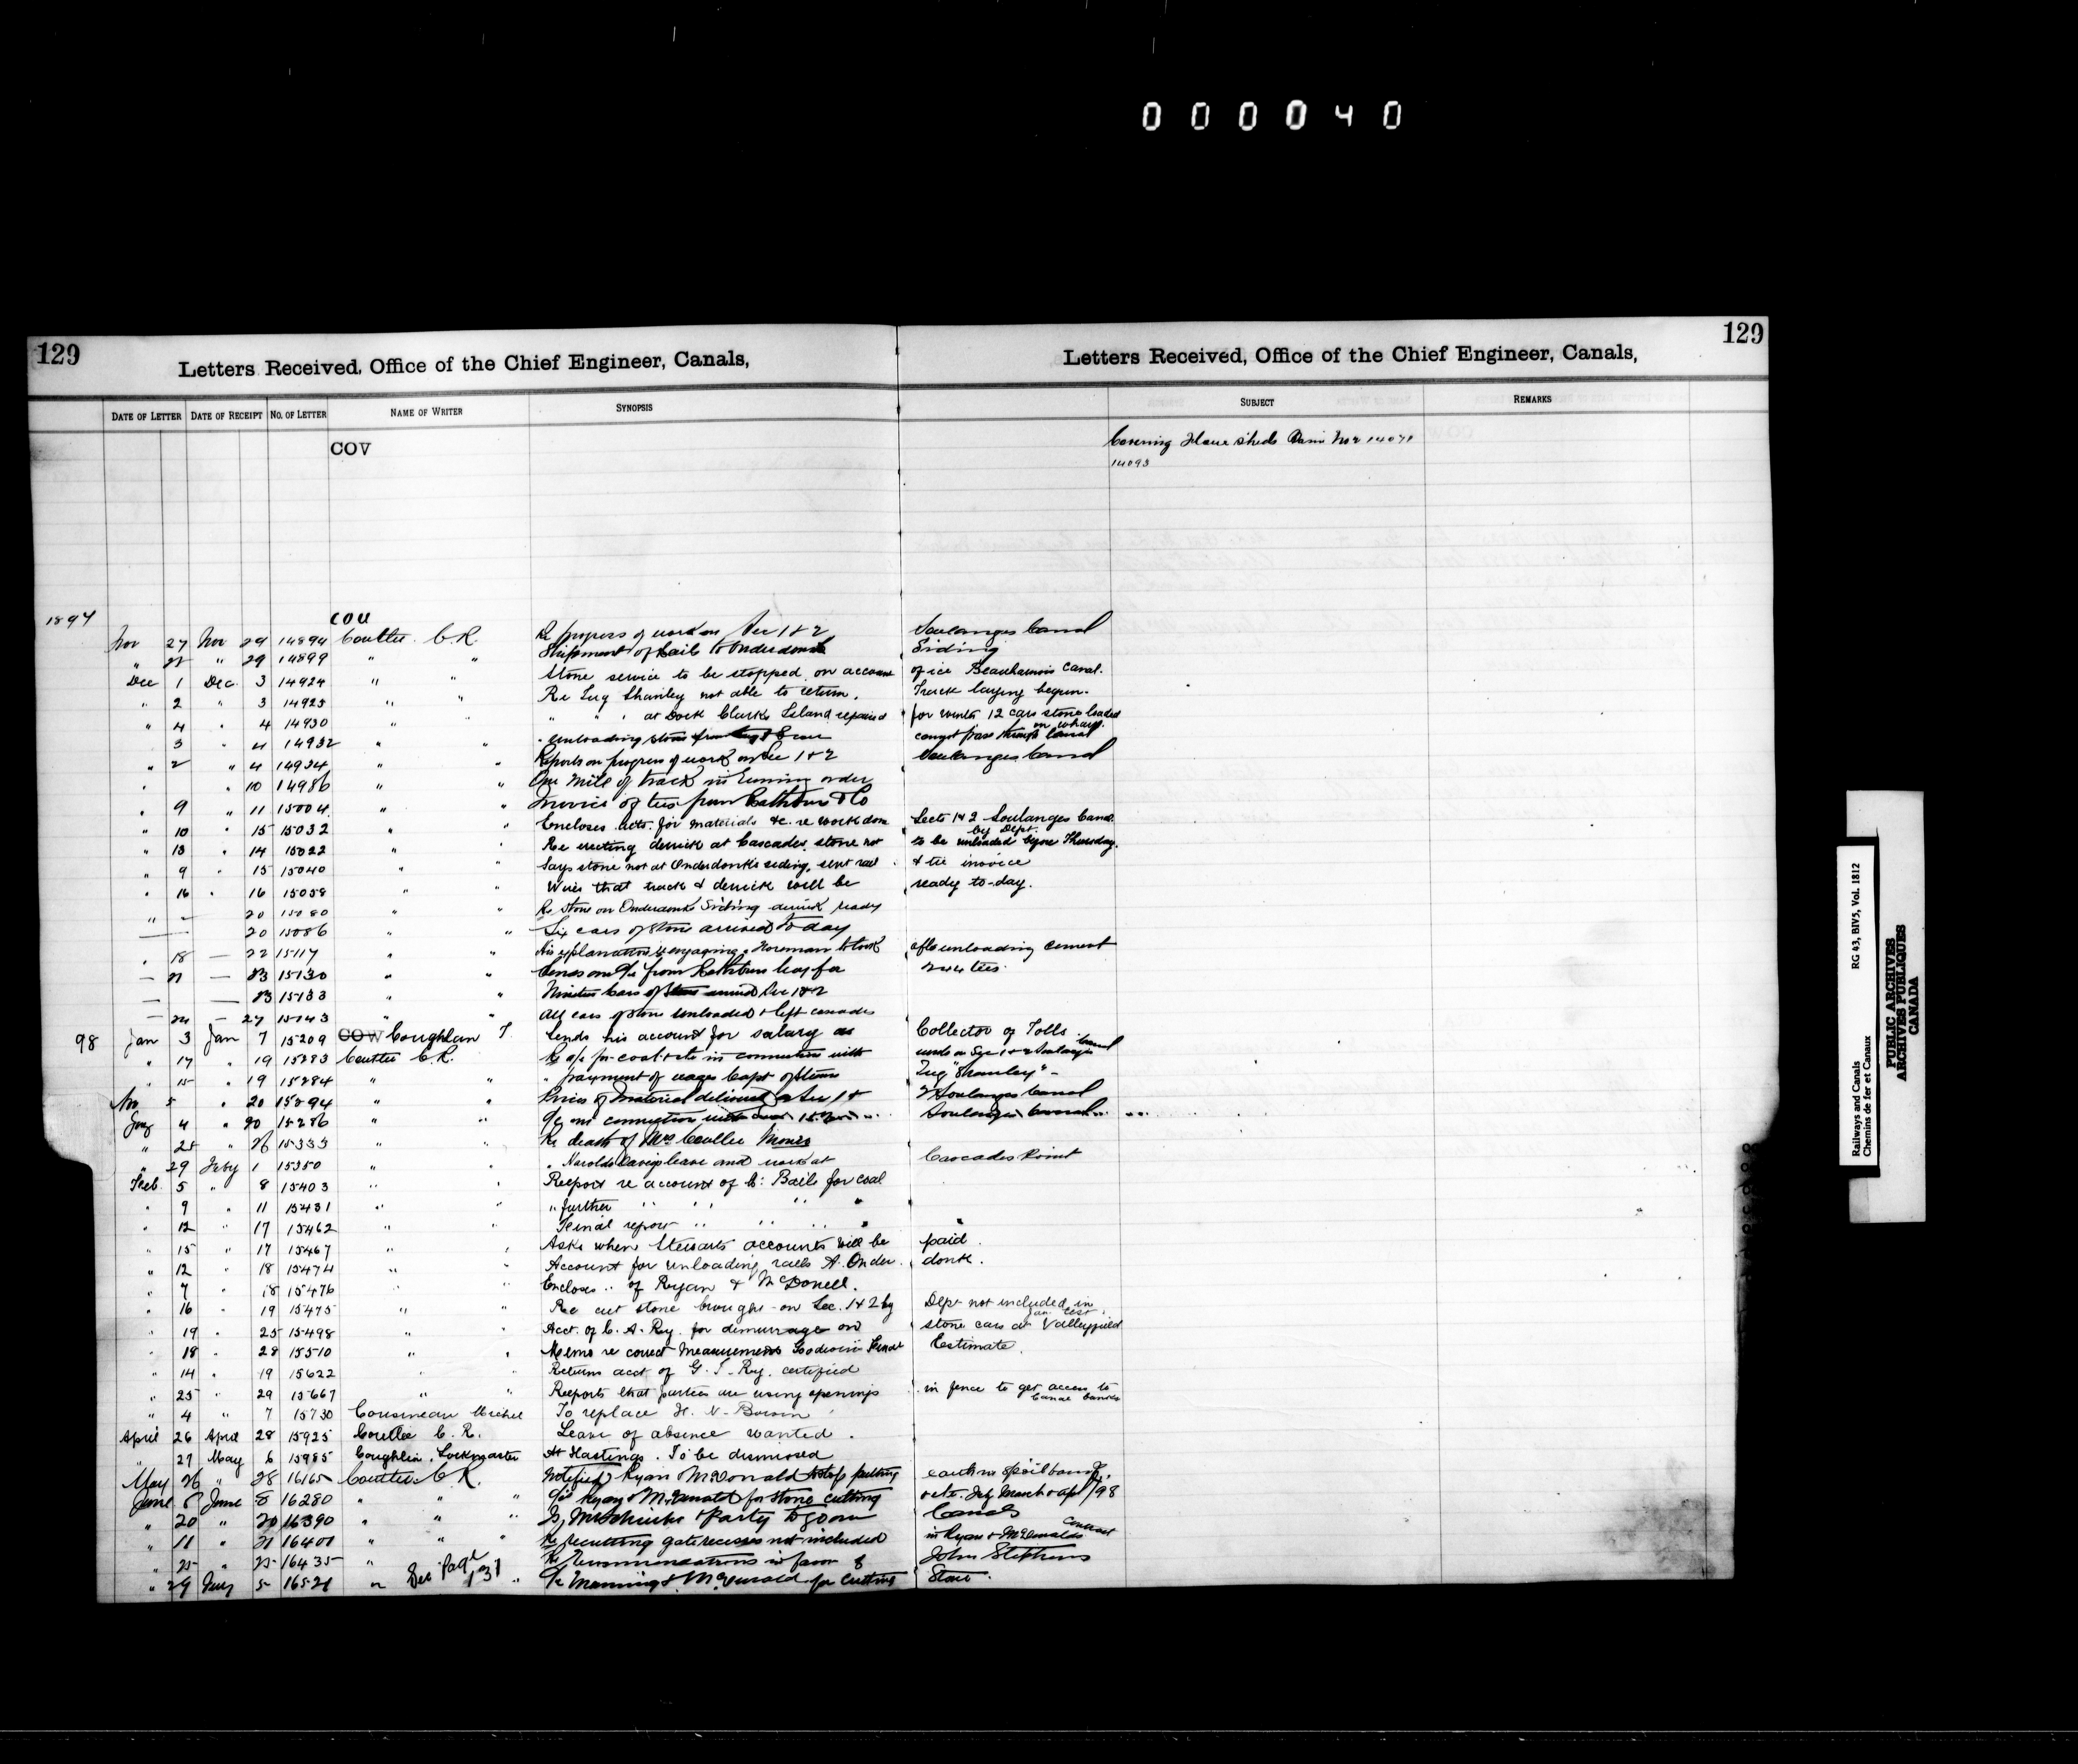 000040
129
129
Letters Received, Office of the Chief Engineer, Canals,
Letters Received, Office of the Chief Engineer, Canals,
DATE OF LETTER DATE OF RECEIPT NO. OF LETTER NAME OF WRITER SYNOPSIS SUBJECT REMARKS
COV
Covering Flour sheds Basin No 2 14071
14093
1897
COU
Nov 27 Nov 29 14894 Coutlee C.R. Re progress of work on Sec 1 & 2 Soulanges Canal
" " 29 14899 " " Shipment of Rails to Onderdonk Siding
Dec 1 Dec 3 14924 " " Stone service to be stopped on account of ice Beauharnois Canal.
" 2 " 3 14925 " " Re Tug Shanley not able to return. Track laying begun.
" 4 " 4 14930 " " " " at Dock Clarks Island repaired for winter 12 cars stone loaded on wharf.
3 " 4 14932 " " Unloading stone from cannot pass through Canal
" 2 " 4 14934 " " Reports on progress of work on Sec 1 & 2 Soulanges Canal
" " 10 14986 " " One mile of track in running order
" 9 " 11 15004 " " Invoice of ties from Rathbun & Co
" 10 " 15 15032 " " Encloses accts. for materials &c. re work done Sects 1 & 2 Soulanges Canal by Dept.
" 13 " 14 15022 " " Re erecting derrick at Cascades, stone not to be unloaded before Thursday.
" 9 " 15 15040 " " Says stone not at Onderdonk's siding, sent rail & tie invoice
" 16 " 16 15058 " " Wires that track & derrick will be ready to-day.
" — 20 15080 " " Re stone on Onderdonks Siding derrick ready
— 20 15086 " " Six cars of stone arrived to day
" 18 — 22 15117 " " His explanation re engaging foreman to look after unloading cement
— 21 — 23 15130 " " Sends from Rathbun Coy for ties.
— — 23 15133 " " Nineteen Cars of Stone arrived Sec 1 & 2
— 24 — 27 15143 " " All cars of stone unloaded & left cascades
98 Jan 3 Jan 7 15209 COW Coughlan T Sends his account for salary as Collector of Tolls.
" 17 " 19 15283 Coutlee C.R. Re a/c for coal &c in connection with work on Sec 1 & 2 Soulanges Canal
" 15 " 19 15284 " " " payment of wages Capt of Steam Tug "Shanley" -
Nov 5 " 20 15294 " " Prices of material delivered on Sec 1 & 2 Soulanges Canal
Jany 4 " 20 15286 " " connection with Soulanges Canal
" 25 " 26 15333 " " Re death of Mrs Coutlee
" 29 Feby 1 15350 " " " leave and work at Cascades Point
Feb. 5 " 8 15403 " " Report re account of C. Baile for coal
" 9 " 11 15431 " " " further " " " "
" 12 " 17 15462 " " Final report " " " "
" 15 " 17 15467 " " Asks when Stewarts accounts will be paid.
" 12 " 18 15474 " " Account for unloading rails A. Onder donk.
" 7 " 18 15476 " " Encloses " of Ryan & McDonell.
" 16 " 19 15475 " " Re cut stone brought on Sec. 1 & 2 by Dept not included in Jan. Est.
" 19 " 25 15498 " " Acct. of C. A. Ry. for demurrage on stone cars at Valleyfield
" 18 " 28 15510 " " Memo re correct measurements Goodwin Final Estimate.
" 14 " 19 15622 " " Returns acct of G. T. Ry. certified
" 25 " 29 15667 " " Reports that parties are using openings in fence to get access to Canal banks
" 4 " 7 15730 Cousineau Michel To replace H. N.
April 26 April 28 15925 Coutlee C. R. Leave of absence wanted.
" 27 May 6 15985 Coughlin, Lockmaster At Hastings. To be dismissed
May 26 " 28 16165 Coutlee C.R. Notified Ryan & McDonald to stop putting earth in spoil bank.
June 8 June 8 16280 " " " Ryan & McDonald for stone cutting Feb March & Apl /98
" 20 " 20 16390 " " " party to go on Canals
" 11 " 21 16401 " " " Re recutting gate recesses not included in Ryan & McDonalds Contract
" 25 " 25 16435 " Re recommendations in favor of John Stephens
" 29 July 5 16521 " See Page 131 " Re Manning & McDonald for Cutting Stone.
Railways and Canals RG 43, BIV5, Vol. 1812
Chemins de fer et Canaux
PUBLIC ARCHIVES
ARCHIVES PUBLIQUES
CANADA